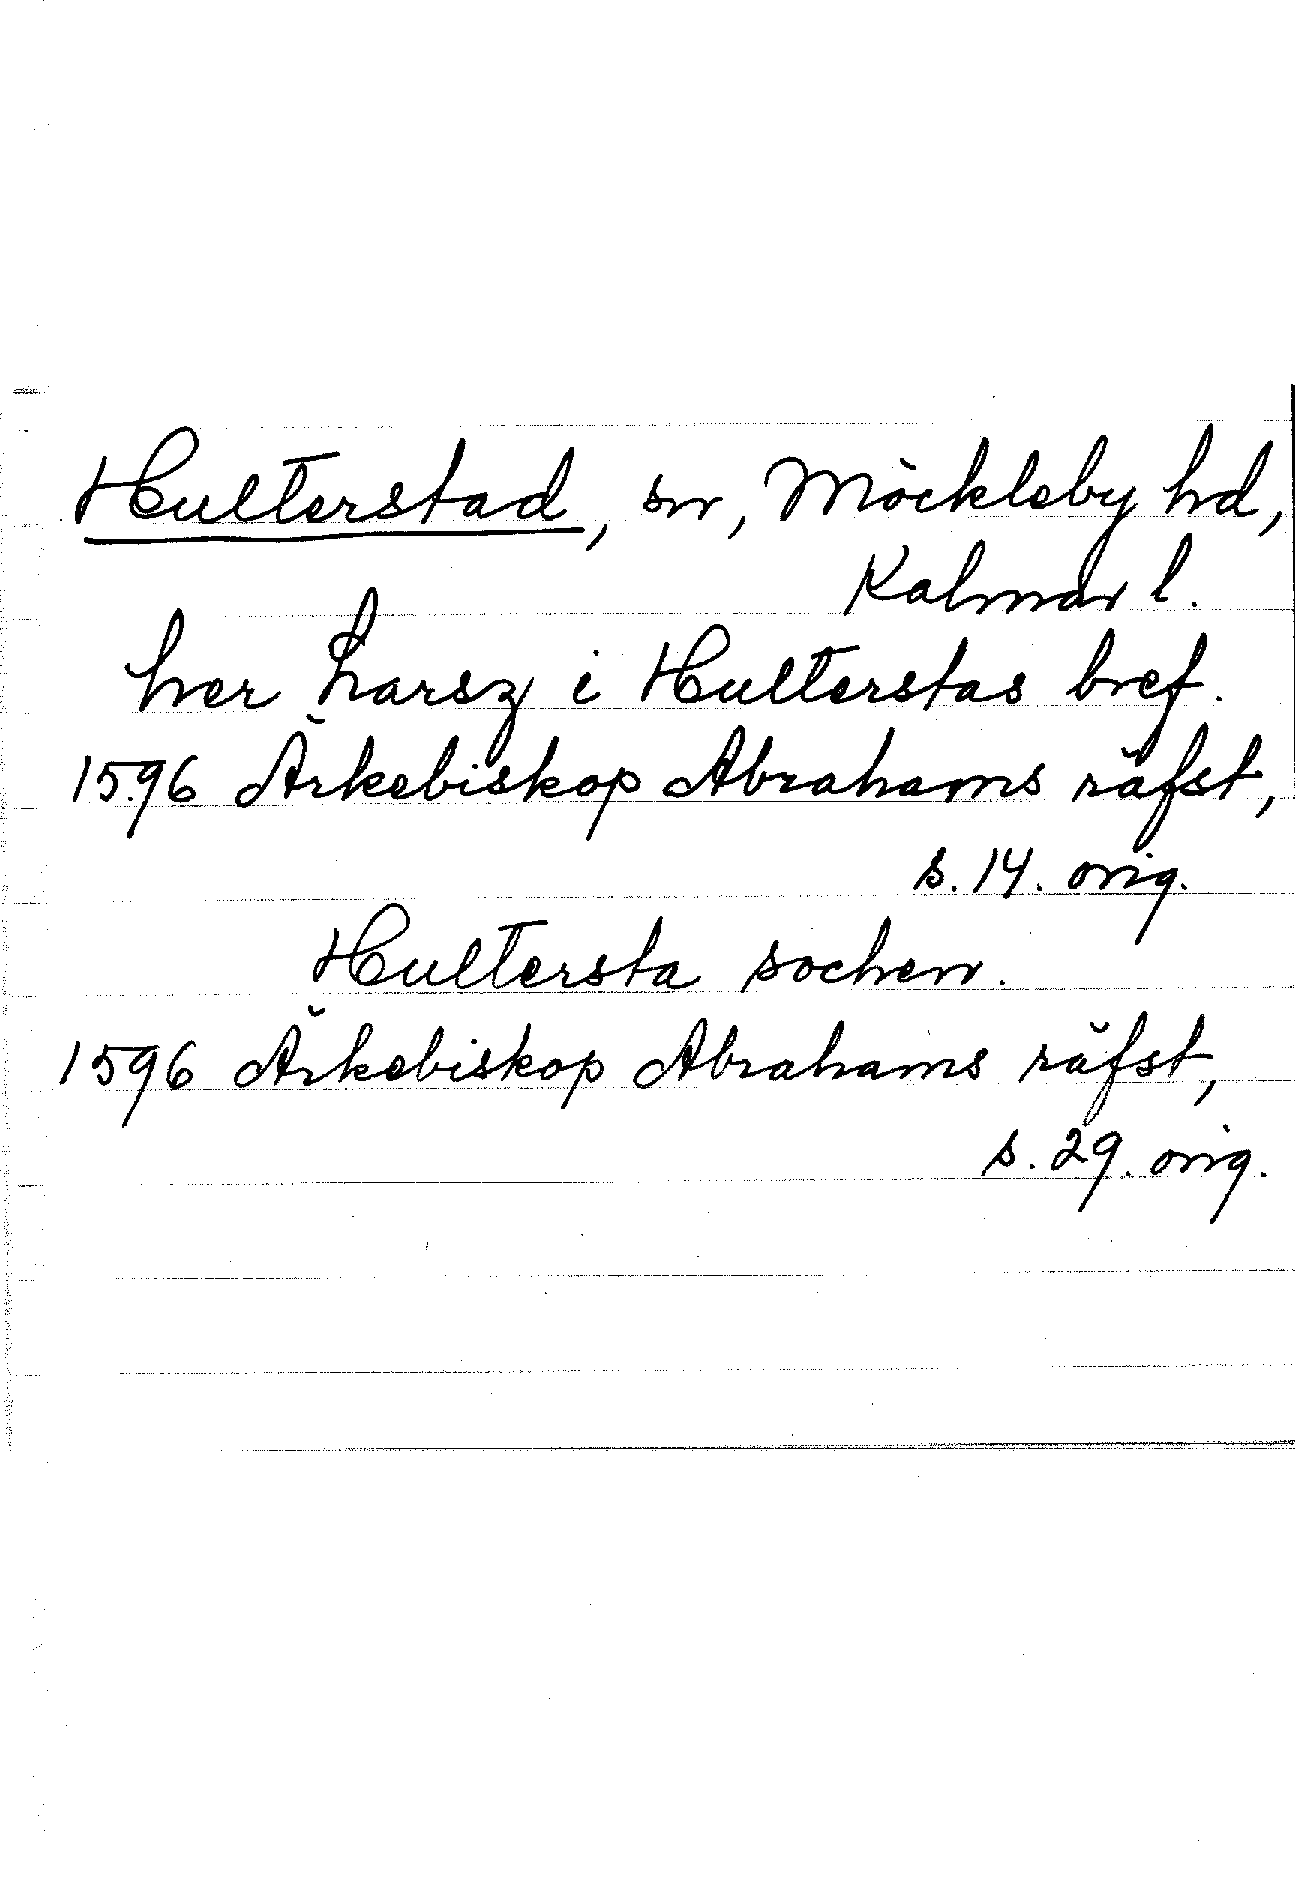 Hulterstad, sn, Möckleby hd,
Kalmar l.
her Larsz i Hulterstas bref.
1596 Ärkebiskop Abrahams räfst,
s. 14. orig.
Hultersta sochen.
1596 Ärkebiskop Abrahams räfst,
s. 29. orig.